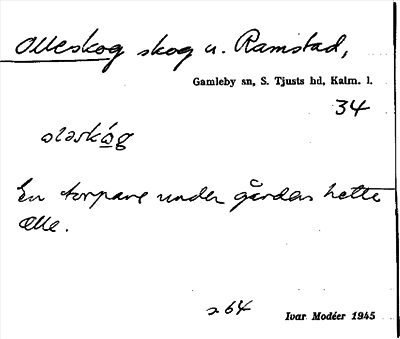 Olleskog skog u. Ramstad,
Gamleby sn, S. Tjusts hd, Kalm. l.
34
ɷləskɷ́g
En torpare under gården hette
Olle.
s. 64
Ivar Modéer 1945